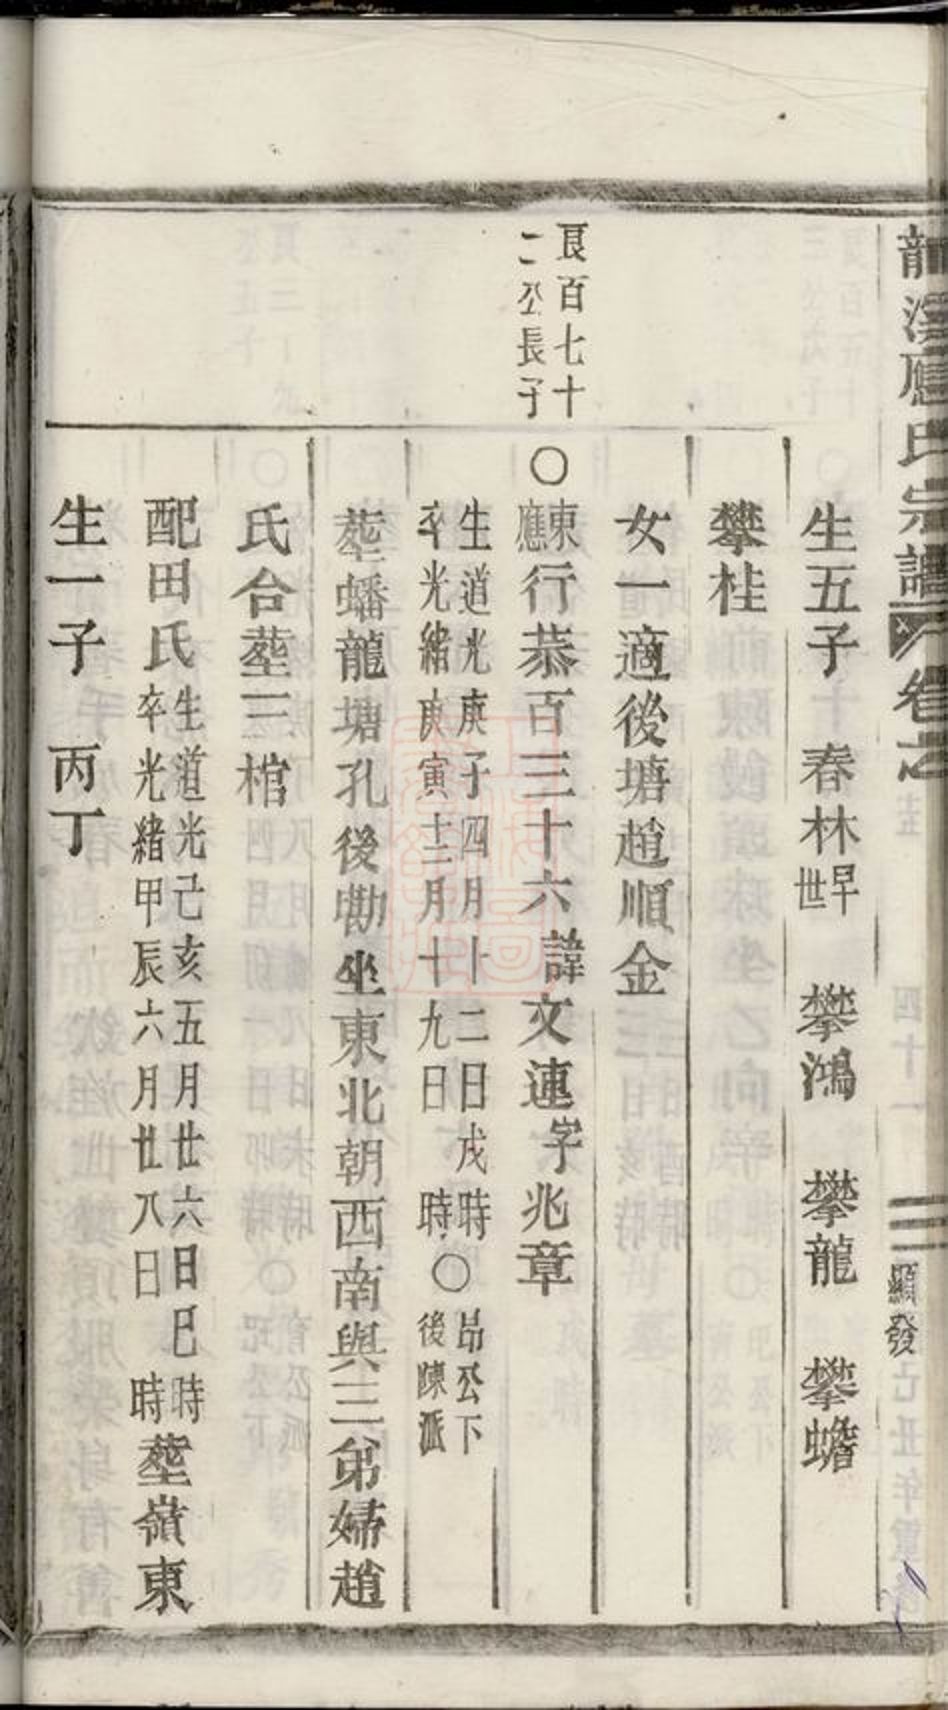 龍溪應氏宗譜 卷之 顯發
生五子 春林早世 攀鴻 攀龍 攀蟾
攀桂
女一適後塘趙順金
良百七十二公長子
○東應行恭百三十六諱文連字兆章
生道光庚子四月十二日戌時
卒光緒庚寅十二月十九日 時○昂公下後陳派
塟蟠龍塘孔後塝坐東北朝西南與三弟婦趙
氏合塟三棺
配田氏生道光己亥五月廿六日巳時
卒光緒甲辰六月廿八日 時塟嶺東
生一子 丙丁